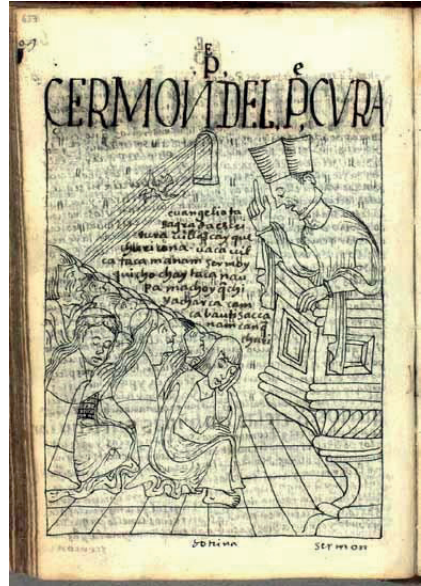 pᵉ
CERMON DEL Pᵉ CVRA
euangeliota
sagrada escri
tura uillascayque
churicona uaca uil
cataca manam seruiy
quicho chaytaca nau
pa machoyq̃chi
yacharca cam
ca bautisasca
nam canq̃
churi
dotrina
sermon